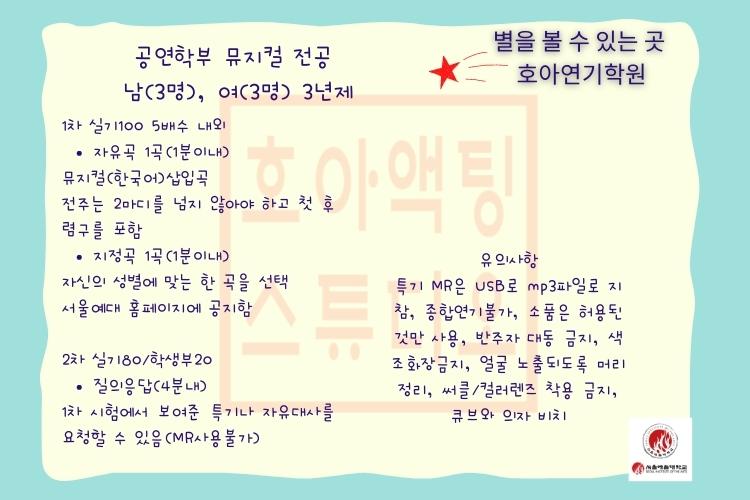 별을 볼 수 있는 곳
호아연기학원
공연학부 뮤지컬 전공
남(3명), 여(3명) 3년제
1차 실기100 5배수 내외
• 자유곡 1곡(1분이내)
뮤지컬(한국어)삽입곡
전주는 2마디를 넘지 않아야 하고 첫 후
렴구를 포함
• 지정곡 1곡(1분이내)
자신의 성별에 맞는 한 곡을 선택
서울예대 홈페이지에 공지함
2차 실기80/학생부20
• 질의응답(4분내)
1차 시험에서 보여준 특기나 자유대사를
요청할 수 있음(MR사용불가)
유의사항
특기 MR은 USB로 mp3파일로 지
참, 종합연기불가, 소품은 허용된
것만 사용, 반주자 대동 금지, 색
조화장금지, 얼굴 노출되도록 머리
정리, 써클/컬러렌즈 착용 금지,
큐브와 의자 비치
호아액팅
스튜디오
서울예술대학교
SEOUL INSTITUTE OF THE ARTS